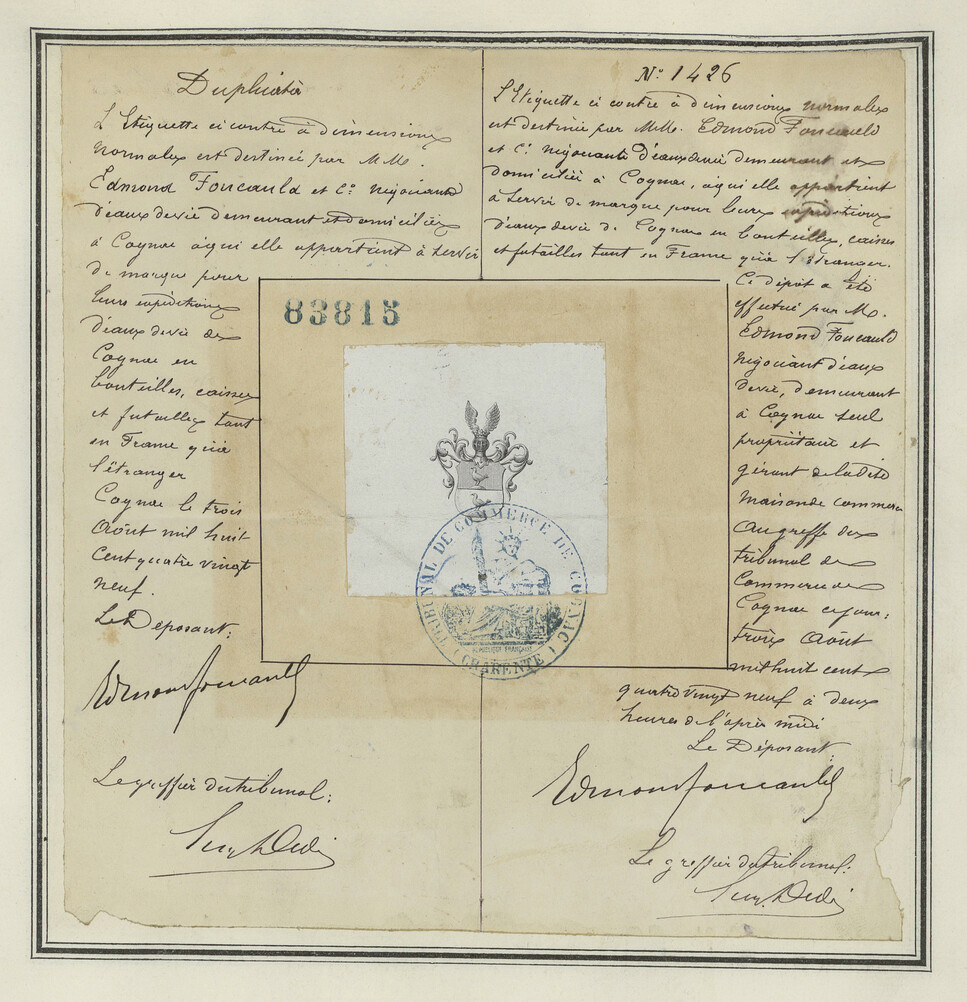 Duplicata
L'Etiquette ci contre à dimensions
normales est destinée par M.M.
Edmond Foucauld et Cie négociants
d'eaux de vie demeurant et domiciliés
à Cognac à qui elle appartient à servir
de marque pour
leurs expéditions
d'eaux de vie de
Cognac en
bouteilles, caisses
et futailles tant
en France qu'à
l'étranger
Cognac le trois
Août mil huit
cent quatre vingt
neuf.
Le Déposant:
Edmond Foucauld
Le greffier du tribunal:
No 1426
L'Etiquette ci contre à dimensions normales
est destinée par M.M. Edmond Foucauld
et Cie négociants d'eaux de vie demeurant et
domiciliés à Cognac, à qui elle appartient
à servir de marque pour leurs expéditions
d'eaux de vie de Cognac en bouteilles, caisses
et futailles tant en France qu'à l'étranger.
Ce dépôt a été
effectué par M.
Edmond Foucauld
négociant d'eaux
de vie, demeurant
à Cognac seul
propriétaire et
gérant de la dite
maison de commerce
au greffe du
tribunal de
Commerce de
Cognac ce jour:
trois Août
mil huit cent
quatre vingt neuf à deux
heures de l'après midi
Le Déposant
Edmond Foucauld
Le greffier du tribunal:
83815
TRIBUNAL DE COMMERCE DE COGNAC
(CHARENTE)
RÉPUBLIQUE FRANÇAISE